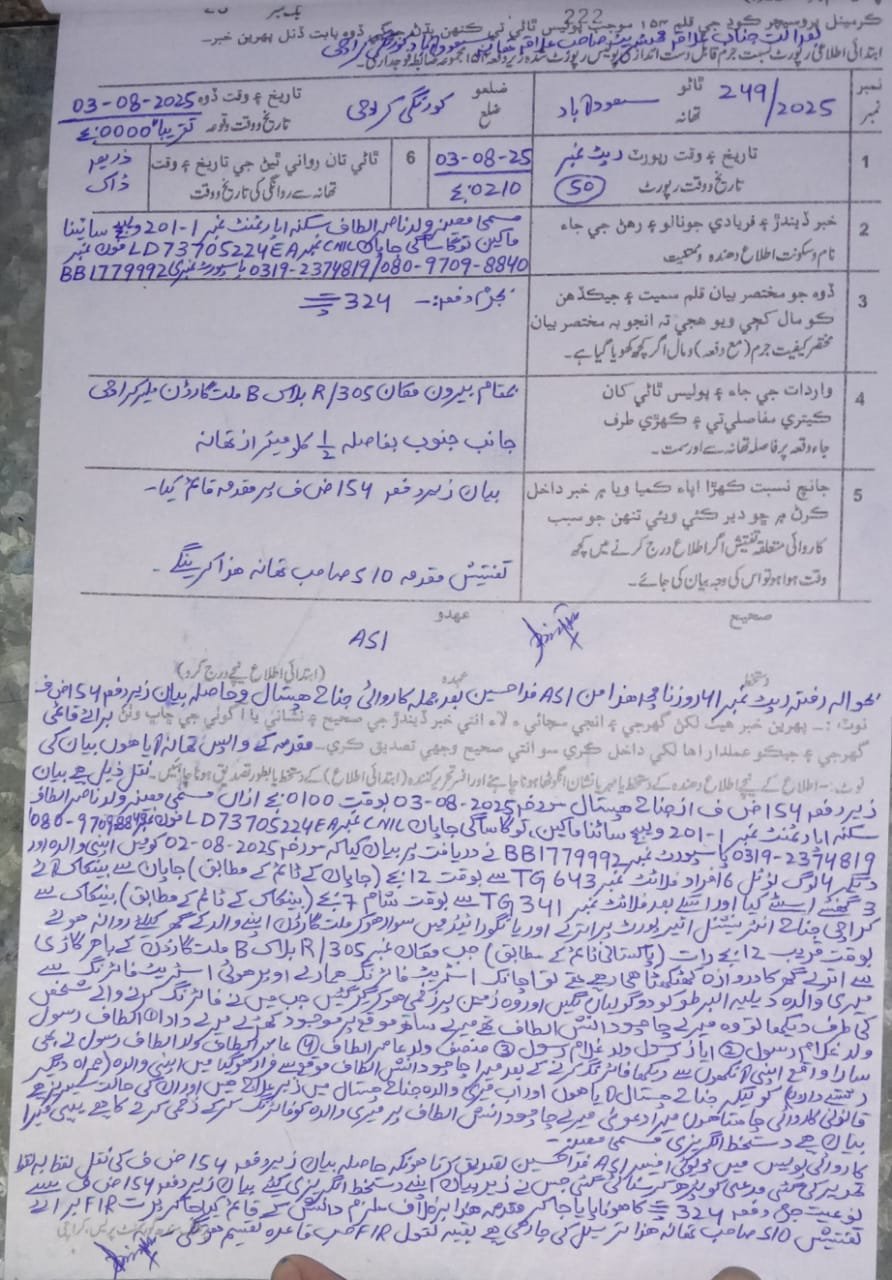 222
ڪرمينل پروسيجر ڪوڊ جي قلم ۱۵۴ موجب پوليس ٿاڻي تي ڪنهن ڏوه بابت ڏنل پهرين خبر۔
ابتدائی اطلاعی رپورٹ نسبت جرم قابل دست اندازی پولیس رپورٹ شدہ زیر دفعہ ۱۵۴ مجموعہ ضابطہ فوجداری۔
نمبر 249/2025 ٿاڻو سعودآباد ضلعو کورنگی کراچی تاريخ ۽ وقت ڏوه 03-08-2025
نمبر تھانہ ضلع تاریخ و وقت وقوعہ تقریباً 0000 بجے
1 تاريخ ۽ وقت رپورٽ رپٹ نمبر 03-08-25 6 ٿاڻي تان رواني ٿيڻ جي تاريخ ۽ وقت ذریعہ
تاریخ و وقت رپورٹ 50 0210 بجے تھانہ سے روانگی کی تاریخ و وقت ڈاک
2 خبر ڏيندڙ ۽ فريادي جو نالو ۽ رهڻ جي جاء مسمی معیز ولد ناصر الطاف سکنہ اپارٹمنٹ نمبر 1-201
نام و سکونت اطلاع دھندہ و مستغیث جاپان CNIC نمبر LD73705224EA فون نمبر
0319-2374819/080-9709-8840 پاسپورٹ نمبر BB1779992
3 ڏوه جو مختصر بيان قلم سميت ۽ جيڪڏهن بجرم دفعہ:- 324 ت پ
ڪو مال کڄي ويو هجي ته انجو به مختصر بيان
مختصر کیفیت جرم (مع دفعہ) و مال اگر کچھ کھویا گیا ہے۔
4 واردات جي جاء ۽ پوليس ٿاڻي کان بمقام بیرون مکان R/305 بلاک B ملت گارڈن ملیر کراچی
ڪيتري مفاصلي تي ۽ ڪهڙي طرف جانب جنوب بفاصلہ ½ کلو میٹر از تھانہ
جاء وقعہ پر فاصلہ تھانہ سے اور سمت۔
5 جانچ نسبت ڪهڙا اپاء ڪميا ويا ۽ خبر داخل بیان زیر دفعہ 154 ض ف پر مقدمہ قائم کیا۔
ڪرڻ ۾ ڇو دير ڪئي ويئي تنهن جو سبب
کاروائی متعلقہ تفتیش اگر اطلاع درج کرنے میں کچھ تفتیش مقدمہ SIO صاحب تھانہ ھذا کرینگے۔
وقت ہوا ہو تو اس کی وجہ بیان کی جائے۔
صحيح عهدو
ASI
دستخط عہدہ (ابتدائی اطلاع نیچے درج کرو)
بحوالہ رفتہ رپٹ نمبر 41 روزنامچہ ھذا من ASI فدا حسین بعد عملہ کاروائی جناح ہسپتال و حاصلہ بیان زیر دفعہ 154 ض ف
نوٽ :۔ پهرين خبر هيٺ لکڻ گهرجي ۽ انجي سچائي ۽ لاء انتي خبر ڏيندڙ جي صحيح ۽ نشاني يا آڱوٺي جي ڇاپ وٺڻ برائے قائمی
گهرجي ۽ جيڪو عملدار اها لکي داخل ڪري سو انتي صحيح وجهي تصديق ڪري۔ مقدمہ کے واپس تھانہ آیا ھوں بیان کی
نوٹ :۔ اطلاع کے نیچے اطلاع دھندہ کے دستخط یا مہر یا نشان انگوٹھا ہونا چاہئے اور افسر تحریر کنندہ (ابتدائی اطلاع) کے دستخط بطور تصدیق ہونا چاہئیں۔ نقل ذیل ہے بیان
زیر دفعہ 154 ض ف از جناح ہسپتال مورخہ 03-08-2025 بوقت 0100 بجے ازاں مسمی معیز ولد ناصر الطاف
سکنہ اپارٹمنٹ نمبر 1-201 جاپان CNIC نمبر LD73705224EA فون نمبر 080-9709-8840
0319-2374819 پاسپورٹ نمبر BB1779992 نے دریافت پر بیان کیا کہ مورخہ 02-08-2025 کو میں اپنی والدہ اور
دیگر 4 لوگ ٹوٹل 6 افراد فلائٹ نمبر TG 643 سے بوقت 12 بجے (جاپان کے ٹائم کے مطابق) جاپان سے بینکاک آئے
3 گھنٹے اسٹے کیا اور اسکے بعد فلائٹ نمبر TG 341 سے بوقت شام 7 بجے (بینکاک کے ٹائم کے مطابق) بینکاک سے
کراچی جناح انٹرنیشنل ائیرپورٹ پر اترے اور سوار ھوکر ملت گارڈن اپنے والد کے گھر کیلئے روانہ ھوئے
بوقت قریب 12 بجے رات (پاکستانی ٹائم کے مطابق) جب مکان نمبر R/305 بلاک B ملت گارڈن کے باھر گاڑی
سے اترے گھر کا دروازہ کھٹکھٹا ھی رھے تھے تو اچانک اسٹریٹ فائرنگ ھمارے اوپر ھوئی اسٹریٹ فائرنگ سے
میری والدہ کو دو گولیاں لگیں اور وہ زمین پر زخمی ھوکر گر گئیں جب میں نے فائرنگ کرنے والے شخص
کی طرف دیکھا تو وہ میرے چاچو دانش الطاف تھے میرے ساتھ موقع پر موجود کھڑے میرے دادا ① الطاف رسول
ولد غلام رسول ② ایاز رسول ولد غلام رسول ③ منصف ولد عامر الطاف ④ عامر الطاف ولد الطاف رسول نے بھی
سارا واقع اپنی آنکھوں سے دیکھا فائرنگ کرنے کے بعد میرا چاچو دانش الطاف موقع سے فرار ھوگیا میں اپنی والدہ (ھمراہ دیگر
رشتے داروں) کو لیکر جناح ہسپتال آیا ھوں اور اب میری والدہ جناح ہسپتال میں زیر علاج ھیں اور ان کی حالت سیریز ہے
قانونی کاروائی چاھتا ھوں میرا دعویٰ میرے چاچو دانش الطاف پر میری والدہ کو فائرنگ کرکے زخمی کرنے کا ہے یہی میرا
بیان ہے دستخط انگریزی مسمی معیز۔
کاروائی پولیس میں ڈیوٹی افسر ASI فدا حسین تصدیق کرتا ھوں کہ حاصلہ بیان زیر دفعہ 154 ض ف کی نقل لفظ بہ لفظ
تحریر کی گئی مدعی کو پڑھ کر سنائی گئی جس نے زیر بیان اپنے دستخط انگریزی کئے بیان زیر دفعہ 154 ض ف سے
نوعیت جرم دفعہ 324 ت پ کا ھونا پایا جاکر مقدمہ ھذا برخلاف ملزم دانش کے قائم کیا جاکر پرت FIR برائے
تفتیش SIO صاحب تھانہ ھذا ترسیل کی جارھی ہے بقیہ نقول FIR حسب قاعدہ تقسیم ھونگی